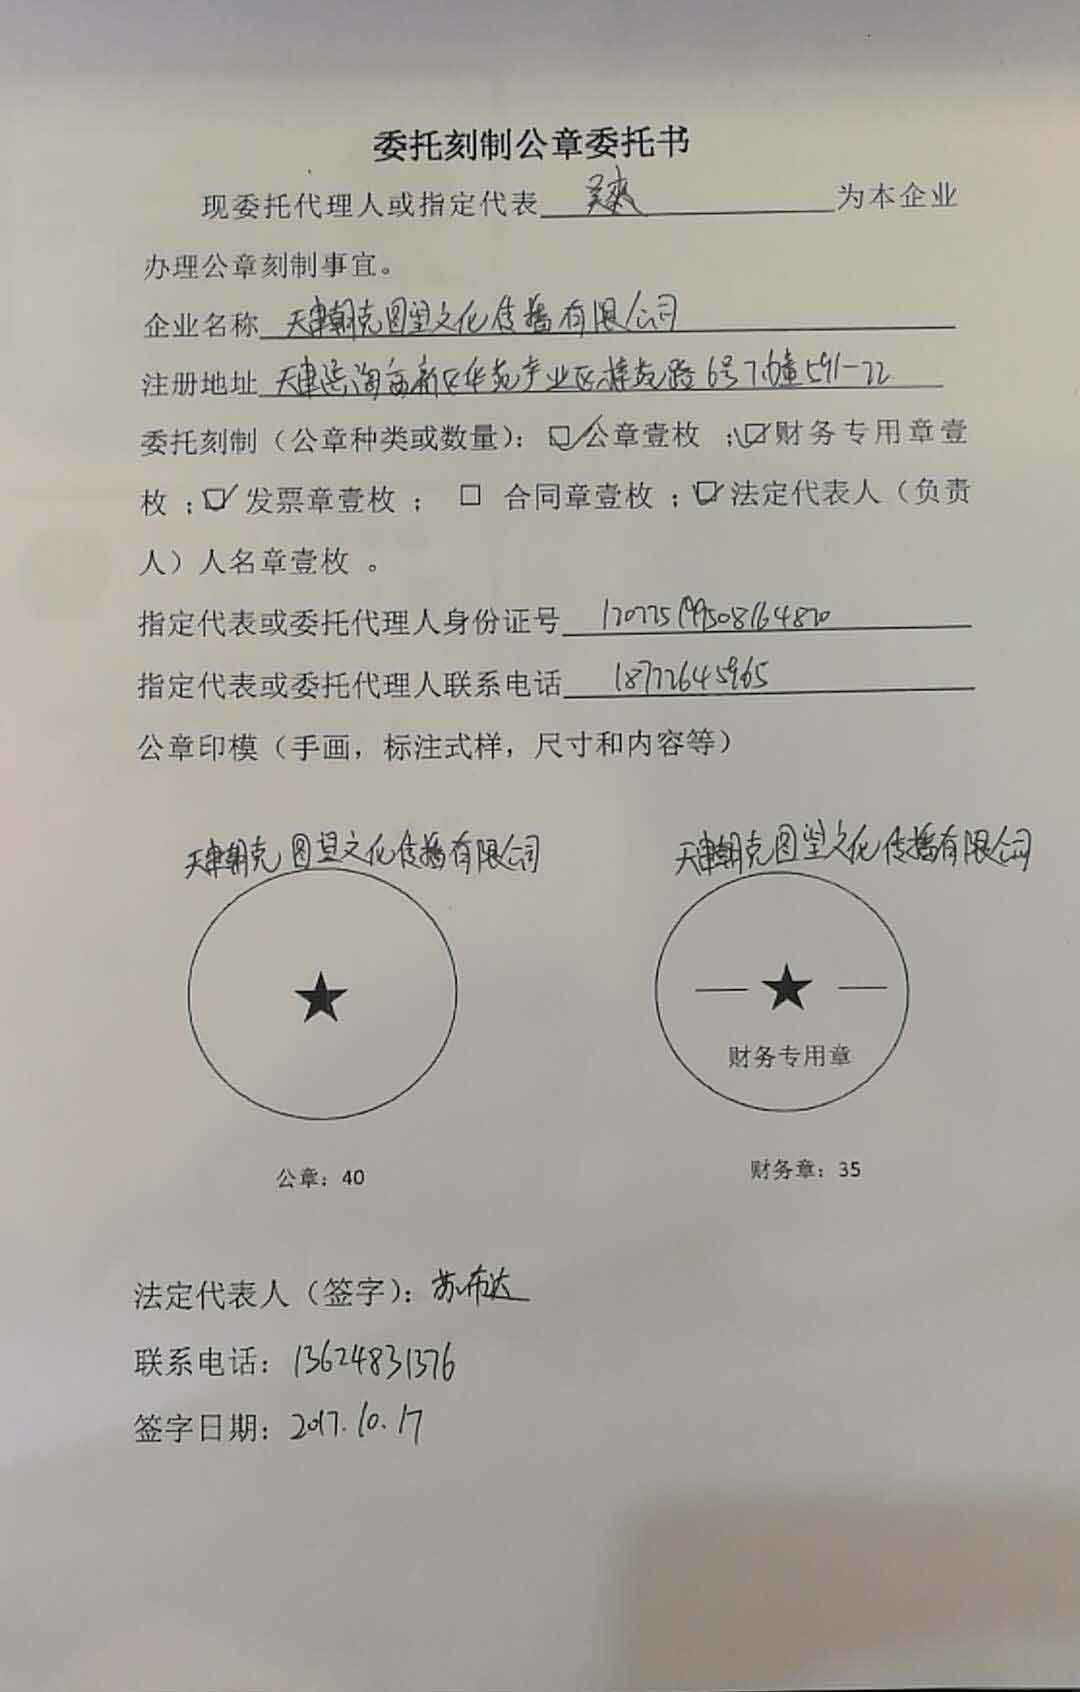 委托刻制公章委托书
现委托代理人或指定代表 吴爽 为本企业
办理公章刻制事宜。
企业名称 天津朝克图望文化传播有限公司
注册地址 天津滨海高新区华苑产业区梓苑路6号7幢591-22
委托刻制（公章种类或数量）：☑公章壹枚 ；☑财务专用章壹
枚 ；☑ 发票章壹枚 ； □ 合同章壹枚 ；☑法定代表人（负责
人）人名章壹枚 。
指定代表或委托代理人身份证号 120225199508164820
指定代表或委托代理人联系电话 18722645965
公章印模（手画，标注式样，尺寸和内容等）
天津朝克图望文化传播有限公司
天津朝克图望文化传播有限公司
★
— ★ —
财务专用章
公章：40
财务章：35
法定代表人（签字）：苏布达
联系电话：13624831376
签字日期：2017.10.17